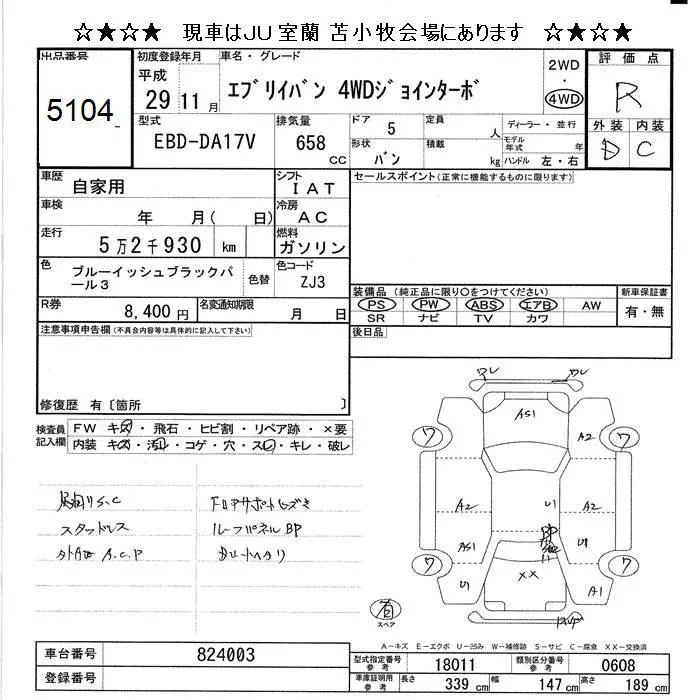 ☆★☆★ 現車はJU室蘭 苫小牧会場にあります ☆★☆★
出品番号
5104
初度登録年月
平成
29 11 月
車名・グレード
エブリイバン 4WDジョインターボ
2WD
・
4WD
評価点
R
外装 内装
D C
型式
EBD-DA17V
排気量
658
CC
ドア 5
定員 人
形状 バン
積載 kg
ディーラー・並行
モデル年式 年
ハンドル 左・右
車歴
自家用
シフト
IAT
セールスポイント(正常に機能するものに限ります)
車検
年 月( 日)
冷房
AC
走行
5万2千930 km
燃料
ガソリン
色
ブルーイッシュブラックパ
ール3
色替
色コード
ZJ3
R券
8,400円
名変通知期限
月 日
装備品(純正品に限り○をつけてください)
PS PW ABS エアB AW
SR ナビ TV カワ
新車保証書
有・無
後日品
注意事項申告欄(不具合内容等は具体的に記入して下さい)
修復歴 有〔箇所 〕
検査員
記入欄
FW キズ・飛石・ヒビ割・リペア跡・×要
内装 キズ・汚れ・コゲ・穴・スレ・キレ・破レ
スタッドレス
ルーフパネルBP
ワレ ワレ
AS1
ワ ワ
A2
A2 U1 A2
BP
AS1 U1
ワ ワ
U1 XX A1
スペア
A-キズ E-エクボ U-凹み W-補修跡 S-サビ C-腐食 XX-交換済
車台番号 824003
登録番号
型式指定番号
参考
18011
類別区分番号
参考
0608
車庫証明用
参考
長さ 339 cm 幅 147 cm 高さ 189 cm